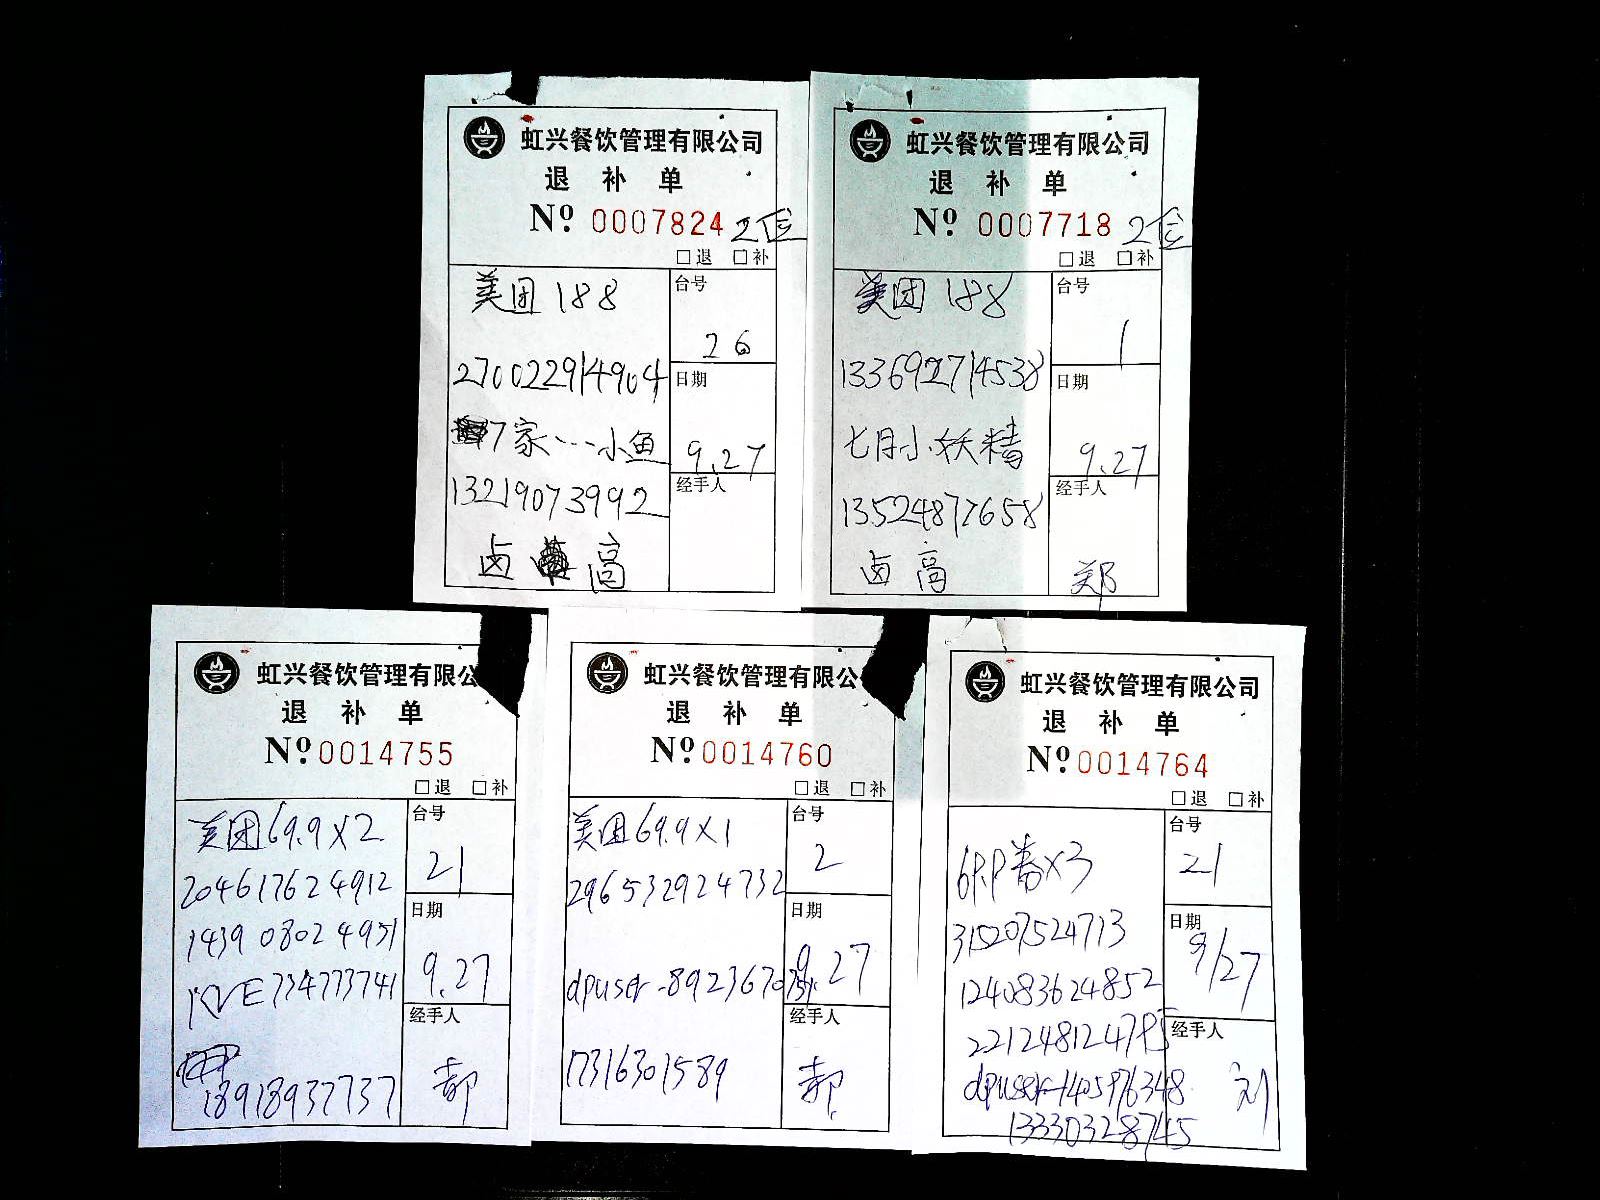 虹兴餐饮管理有限公司
退补单
Nº 0007824 2位
□退 □补
美团188
台号
26
270022914904
日期
9.27
7家...小鱼
经手人
13219073992
卤 高
虹兴餐饮管理有限公司
退补单
Nº 0007718 2位
□退 □补
美团188
台号
1
133692714538
日期
9.27
七月小妖精
经手人
13524877658
卤高
郑
虹兴餐饮管理有限公
退补单
Nº 0014755
□退 □补
美团69.9X2
台号
21
204617624912
日期
9.27
143908024951
经手人
18918937737
郝
虹兴餐饮管理有限公
退补单
Nº 0014760
□退 □补
美团69.9X1
台号
2
296532924732
日期
9.27
经手人
17316301589
郝
虹兴餐饮管理有限公司
退补单
Nº 0014764
□退 □补
台号
21
315207524713
日期
9/27
124083624852
经手人
刘